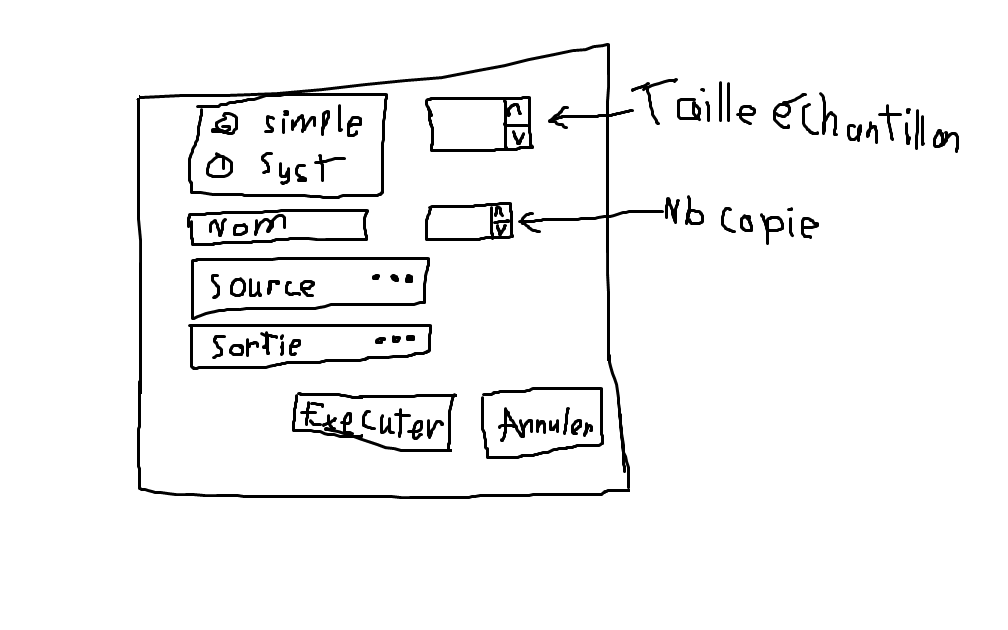 simple
Taille échantillon
Syst
Nom
Nb copie
Source ...
Sortie ...
Executer
Annuler